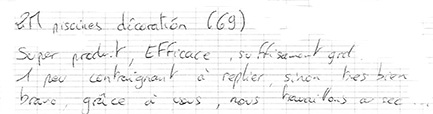 2M piscines décoration (69)
Super produit, Efficace, suffisament grd.
1 peu contraignant à replier, sinon très bien
bravo, grâce à vous, nous travaillons au sec...